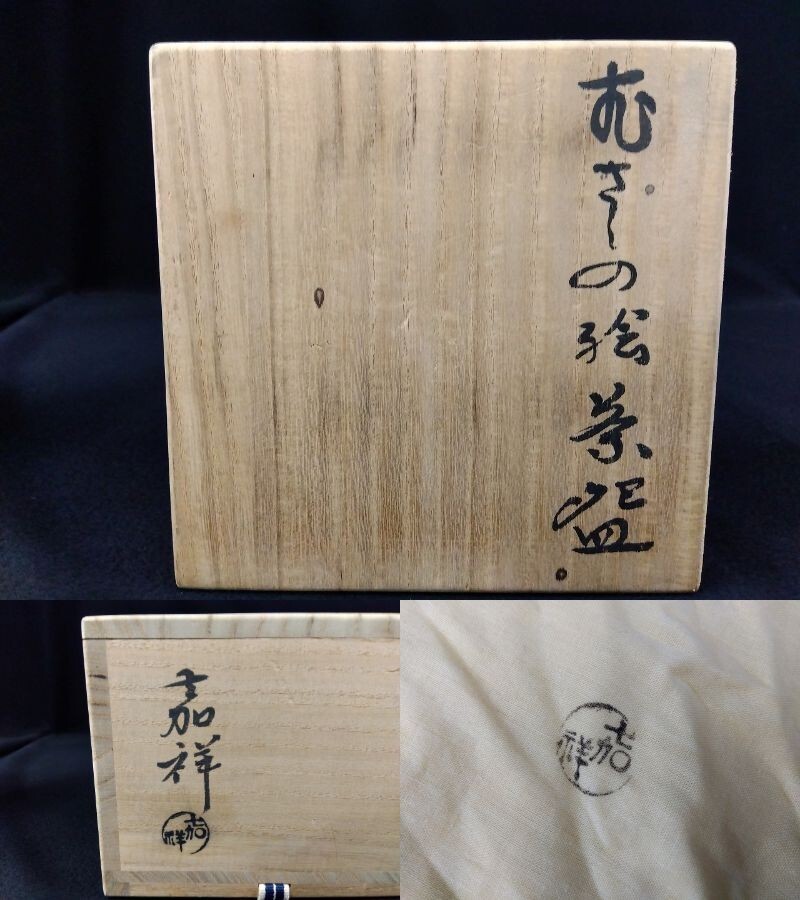 むさしの絵茶盌
嘉祥
嘉祥
嘉祥